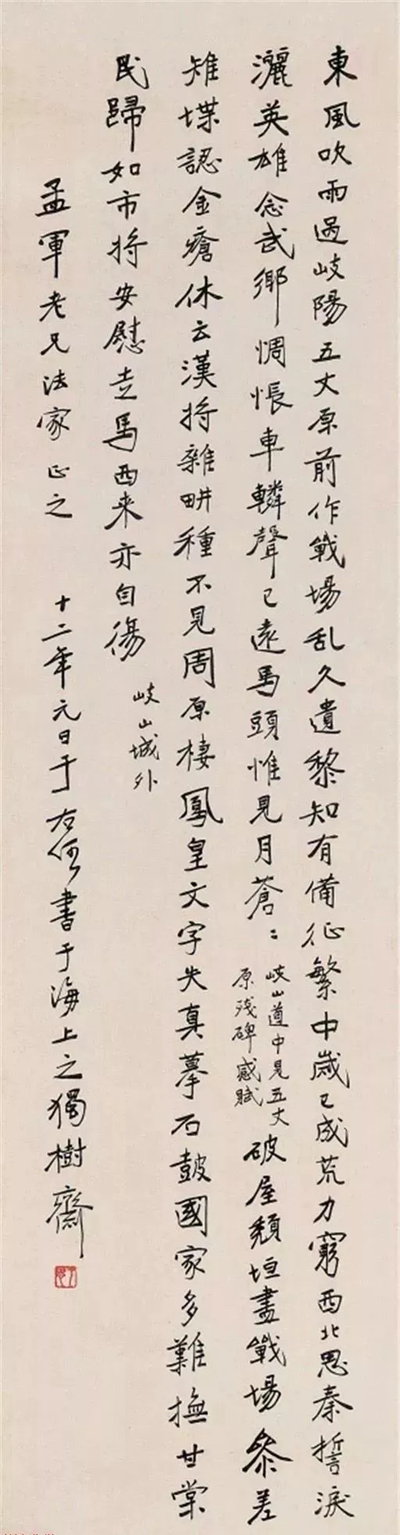 東風吹雨過岐陽五丈原前作戰場乱久遺黎知有備征繁中歲已成荒力窮西北思秦誓淚
灑英雄念武鄉惆悵車轔聲已遠馬頭惟見月蒼〻
岐山道中見五丈
原残碑感賦
破屋頹垣盡戰場參差
雉堞認金瘡休云漢將雜畊種不見周原棲鳳皇文字失真摹石鼓國家多難撫甘棠
民歸如市將安慰走馬西来亦自傷
岐山城外
孟軍老兄法家正之 十二年元日于右任書于海上之獨樹齋